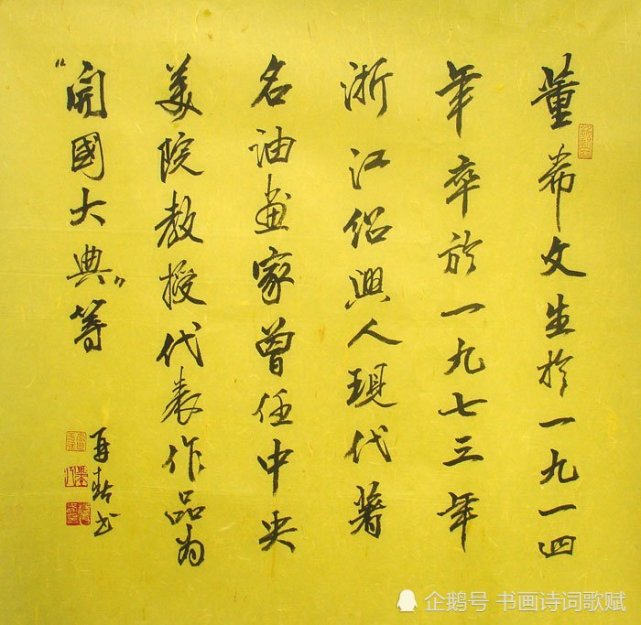 董希文生於一九一四
年卒於一九七三年
浙江紹興人現代著
名油畫家曾任中央
美院教授代表作品為
“開國大典”等
再喆书
企鹅号 书画诗词歌赋